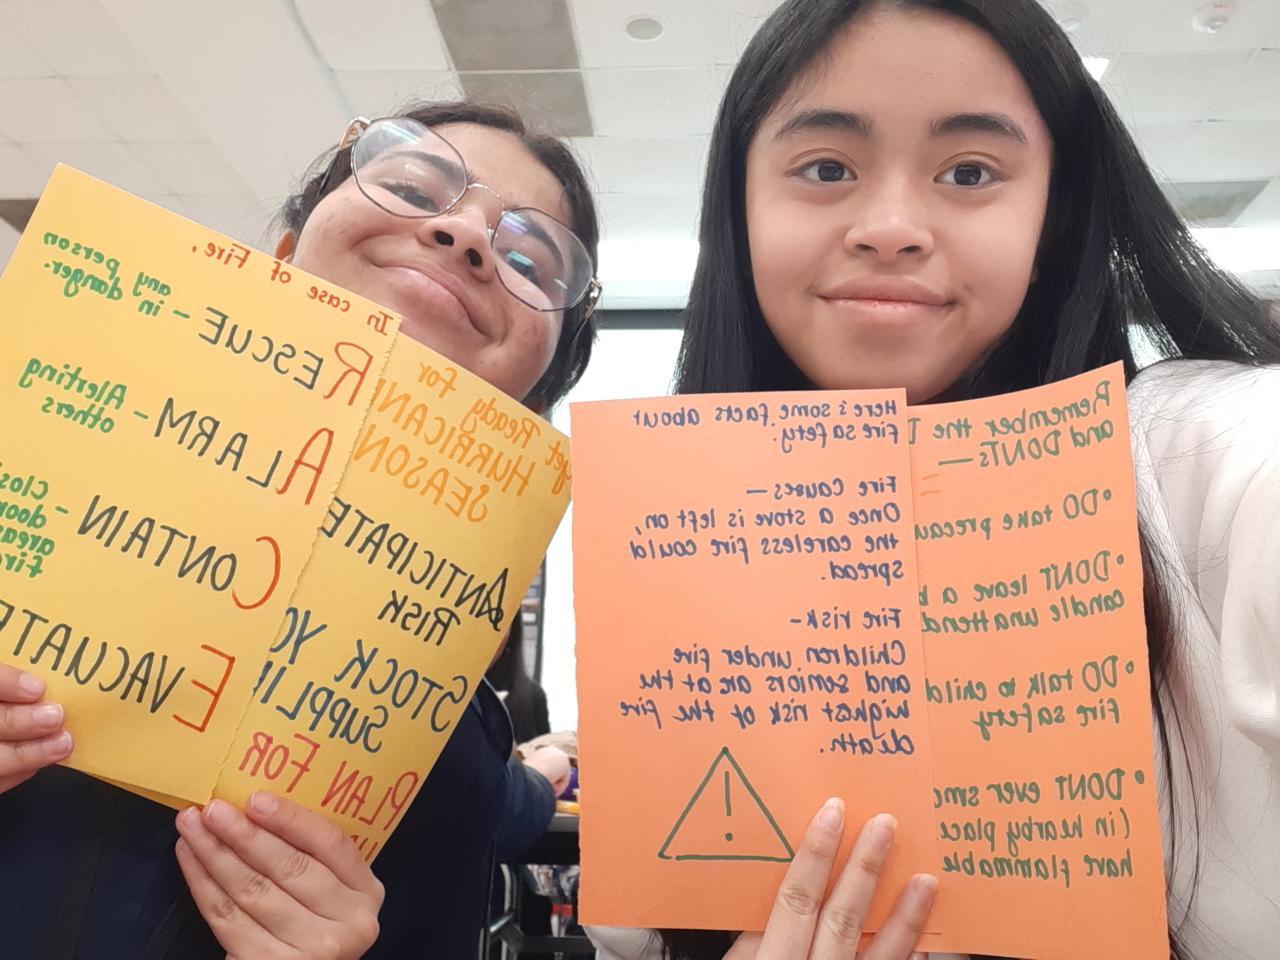 In case of Fire,
RESCUE - any person
in danger.
ALARM - Alerting
others
CONTAIN -
door
areas
fire
EVACUATE
get Ready for
HURRICAN
SEASON
ANTICIPATE
RISK
STOCK YO
SUPPLI
PLAN FOR
Here's some facts about
fire safety.
Fire Causes—
Once a stove is left on,
the careless fire could
spread.
Fire risk-
Children under fire
and seniors are at the
highest risk of the fire
death.
!
Remember the D
and DONTs—
• DO take precau
• DON'T leave a b
candle unattend
• DO talk to child
fire safety
• DONT ever smo
(in nearby place
have flammable